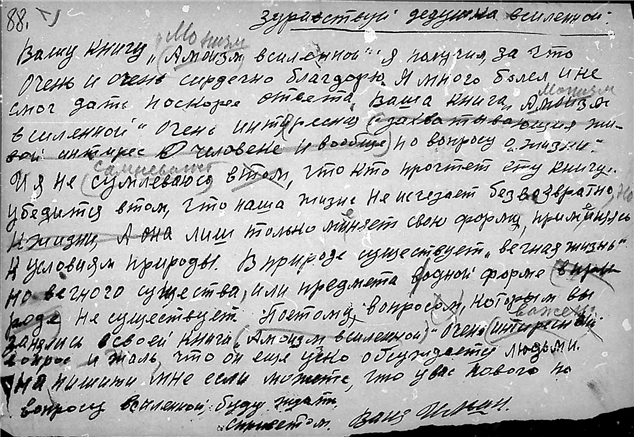 88.
Здравствуй дедушка вселенной.
Монизм
Вашу книгу „Амоизм вселенной" я получил, за что
очень и очень сердечно благодорю. Я много болел и не
смог дать поскорее ответа. Ваша книга „Амоизм
Монизм
вселенной" очень интересна (захватывающия жи-
вой интирес о человене и вообще) по вопросу о жизни.
Сомневаюсь
И я не (сумлеваюсь) в том, что кто прочтет ету книгу
убедится в том, что наша жизнь не исчезает безвозвратно, но
и жизни, а она лиш только меняет свою форму, применяясь
к условиям природы. В природе существует „вечная жизнь"
но вечного существа, или предмета в одной форме
роде не существует. Поетому, вопросом, которым вы
важен
занялись в своей книги (Амоизм вселенной) очень интиресный
вопрос и жаль, что он еще узно обсуждается людьми.
пишити мне если можете, что у вас нового по
вопросу вселенной буду ждать.
С приветом. Ваня